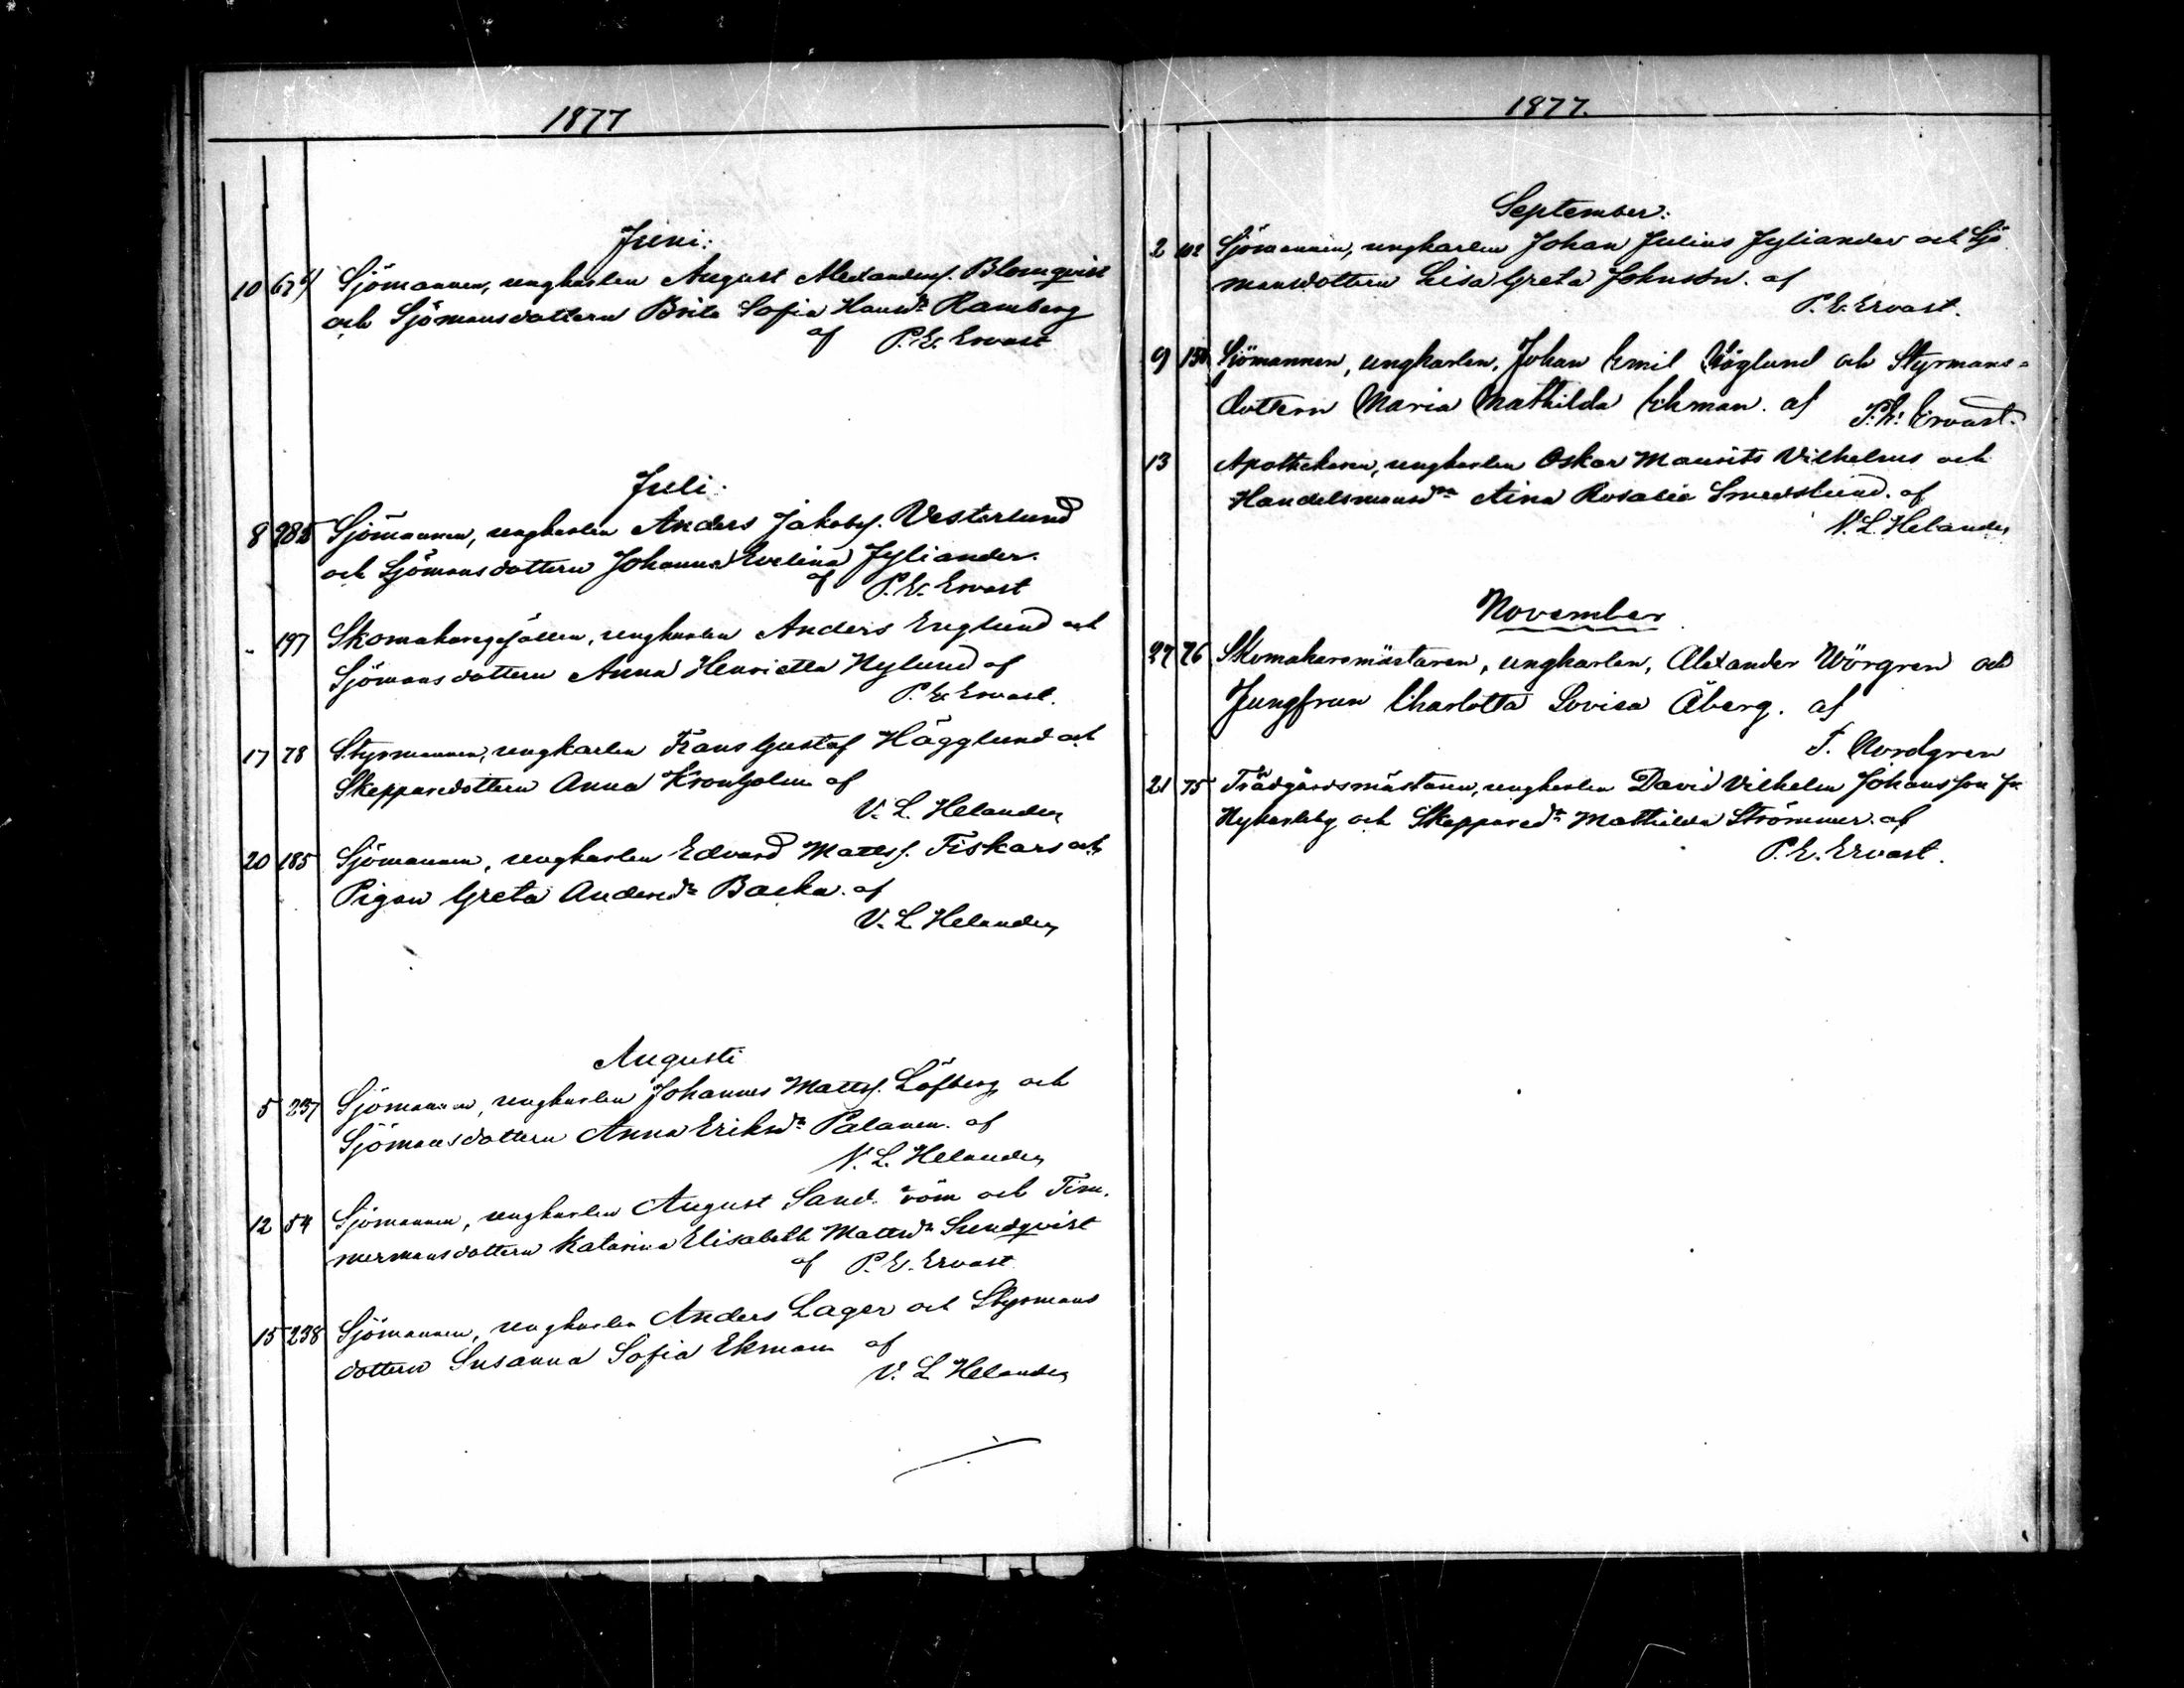 1877
Juni:
10 67 Sjömannen, ungkarlen August Alexandersf. Blomqvist
och Sjömansdottern Brita Sofia Hansdr Ramberg
af P. E. Ervast
Juli.
8 285 Sjömannen, ungkarlen Anders Jakobsf. Vesterlund
och Sjömansdottern Johanna Evelina Jyliander.
af P. E. Ervast
" 197 Skomakaregesällen, ungkarlen Anders Englund och
Sjömansdottern Anna Henrietta Nylund af
P. E. Ervast.
17 78 Styrmannen, ungkarlen Frans Gustaf Hägglund och
Skeppsredottern Anna Kronholm af
V. L. Helander
20 185 Sjömannen, ungkarlen Edvard Mattsf. Fiskars och
Pigan Greta Andersdr Backa. af
V. L. Helander
Augusti
5 237 Sjömannen, ungkarlen Johannes Mattsf. Löfberg och
Sjömansdottern Anna Eriksdr Palanen. af
V. L. Helander
12 54 Sjömannen, ungkarlen August Sand röm och Tim.
mermansdottern Katarina Elisabeth Mattsdr Sundqvist
af P. E. Ervast
15 238 Sjömannen, ungkarlen Anders Lager och Styrmans
dottern Susanna Sofia Ekman af
V. L. Helander
1877.
September:
2 102 Sjömannen, ungkarlen Johan Julius Jyliander och Sjö
mansdottern Lisa Greta Johnson. af
P. E. Ervast.
9 150 Sjömannen, ungkarlen, Johan Emil Höglund och Styrmans-
dottern Maria Mathilda Ekman. af P. E. Ervast.
13 Apothekaren, ungkarlen Oskar Maurits Vilhelms och
Handelsmansdrn Aina Rosalie Smedslund. af
V. L. Helander
November
27 76 Skomakaremästaren, ungkarlen, Alexander Wörgren och
Jungfrun Charlotta Lovisa Åberg. af
F. Nordgren
21 75 Trädgårdsmästaren, ungkarlen David Vilhelm Johansson fr.
Nykarleby och Skeppared. Mathilda Strömmer. af
P. E. Ervast.